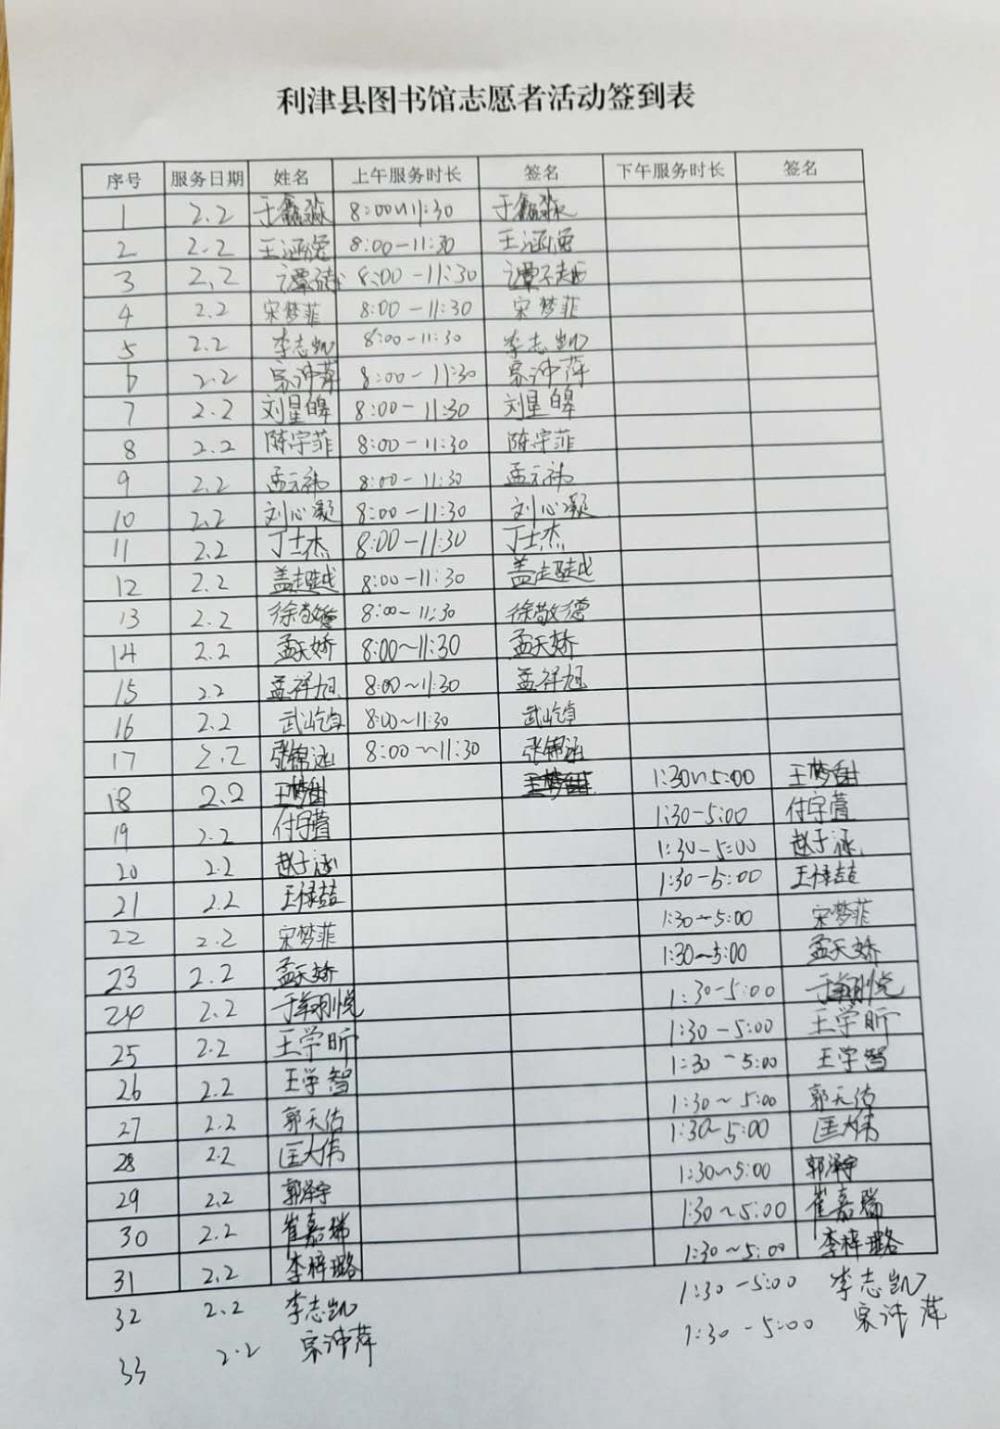 利津县图书馆志愿者活动签到表
序号 服务日期 姓名 上午服务时长 签名 下午服务时长 签名
1 2.2 于鑫淼 8:00~11:30 于鑫淼
2 2.2 王涵 8:00-11:30 王涵
3 2.2 谭 8:00-11:30 谭子越
4 2.2 宋梦菲 8:00-11:30 宋梦菲
5 2.2 李志凯 8:00-11:30 李志凯
6 2.2 宋沛萍 8:00-11:30 宋沛萍
7 2.2 刘星皞 8:00-11:30 刘星皞
8 2.2 陈宇菲 8:00-11:30 陈宇菲
9 2.2 孟云祎 8:00-11:30 孟云祎
10 2.2 刘心凝 8:00-11:30 刘心凝
11 2.2 丁士杰 8:00-11:30 丁士杰
12 2.2 盖超越 8:00-11:30 盖超越
13 2.2 徐敬德 8:00~11:30 徐敬德
14 2.2 孟天娇 8:00~11:30 孟天娇
15 2.2 孟祥旭 8:00~11:30 孟祥旭
16 2.2 武屹贞 8:00~11:30 武屹贞
17 2.2 张锦涵 8:00~11:30 张锦涵
18 2.2 王梦甜 1:30~5:00 王梦甜
19 2.2 付宇萱 1:30-5:00 付宇萱
20 2.2 赵子涵 1:30-5:00 赵子涵
21 2.2 王禄喆 1:30-5:00 王禄喆
22 2.2 宋梦菲 1:30-5:00 宋梦菲
23 2.2 孟天娇 1:30~5:00 孟天娇
24 2.2 于翔悦 1:30-5:00 于翔悦
25 2.2 王学昕 1:30-5:00 王学昕
26 2.2 王学智 1:30-5:00 王学智
27 2.2 郭天佑 1:30~5:00 郭天佑
28 2.2 匡大伟 1:30~5:00 匡大伟
29 2.2 郭泽宇 1:30~5:00 郭泽宇
30 2.2 崔嘉瑞 1:30~5:00 崔嘉瑞
31 2.2 李梓璐 1:30~5:00 李梓璐
32 2.2 李志凯 1:30-5:00 李志凯
33 2.2 宋沛萍 1:30-5:00 宋沛萍